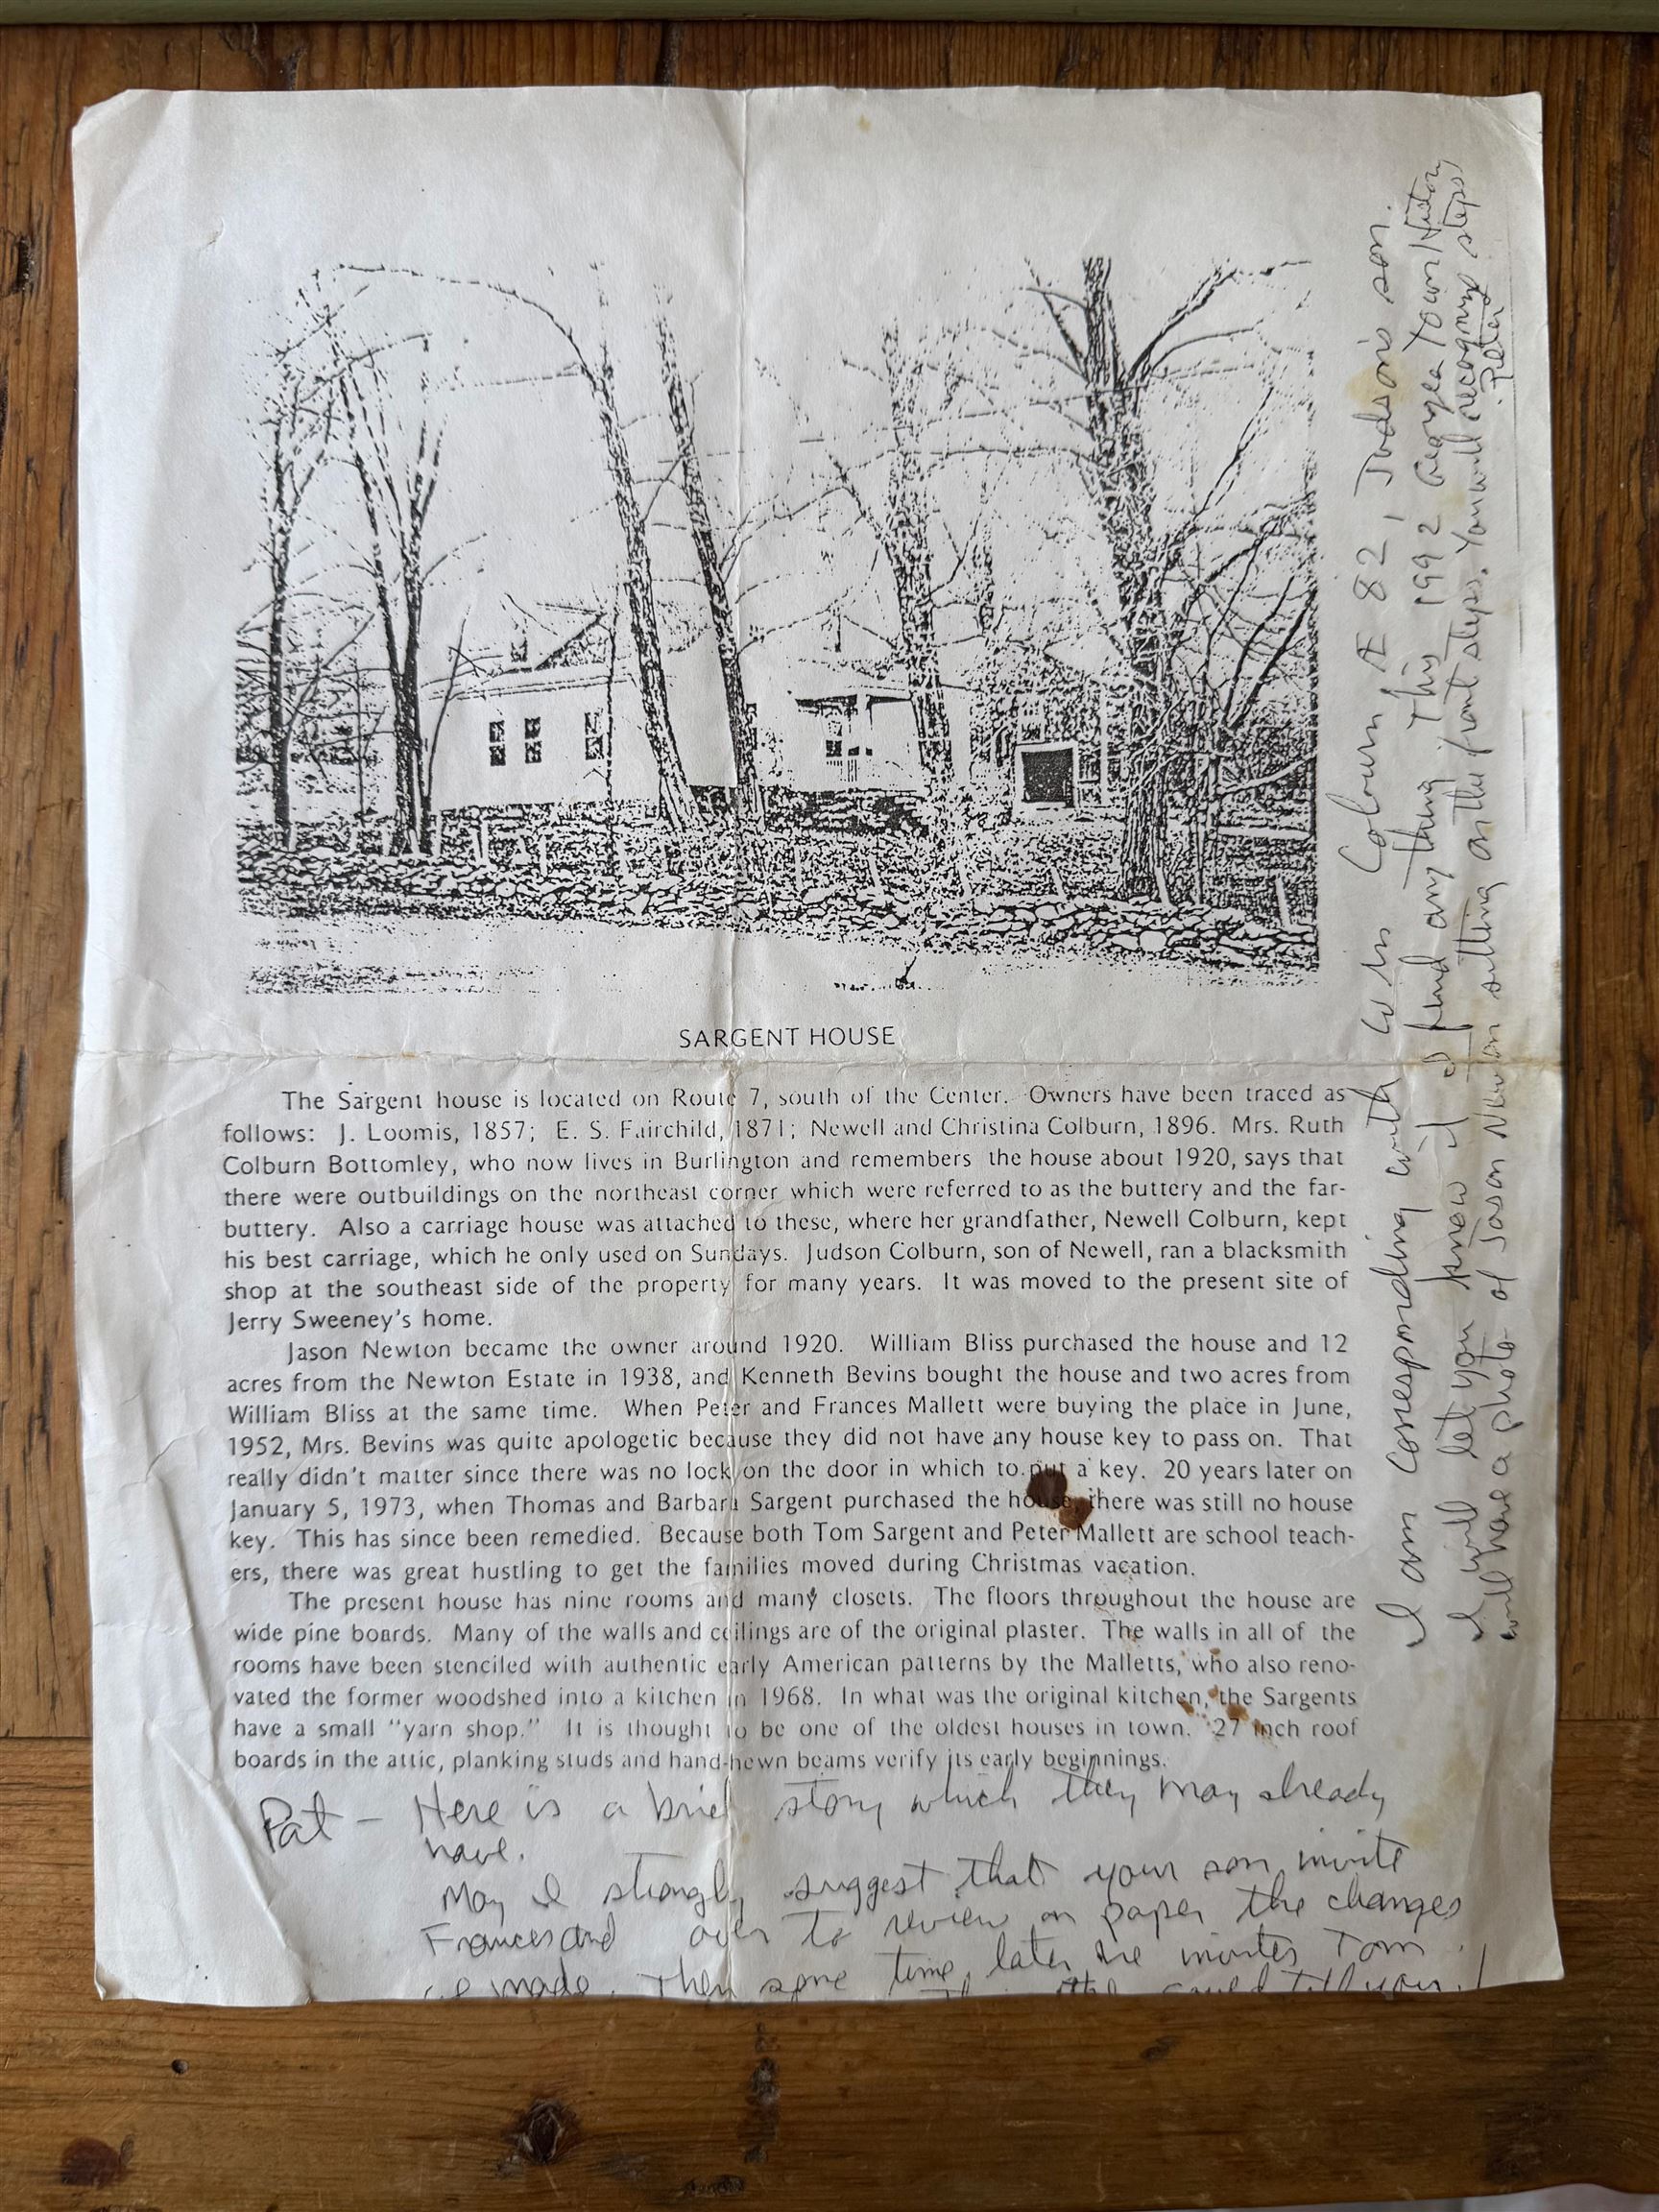 SARGENT HOUSE
The Sargent house is located on Route 7, south of the Center. Owners have been traced as
follows: J. Loomis, 1857; E. S. Fairchild, 1871; Newell and Christina Colburn, 1896. Mrs. Ruth
Colburn Bottomley, who now lives in Burlington and remembers the house about 1920, says that
there were outbuildings on the northeast corner which were referred to as the buttery and the far-
buttery. Also a carriage house was attached to these, where her grandfather, Newell Colburn, kept
his best carriage, which he only used on Sundays. Judson Colburn, son of Newell, ran a blacksmith
shop at the southeast side of the property for many years. It was moved to the present site of
Jerry Sweeney's home.
Jason Newton became the owner around 1920. William Bliss purchased the house and 12
acres from the Newton Estate in 1938, and Kenneth Bevins bought the house and two acres from
William Bliss at the same time. When Peter and Frances Mallett were buying the place in June,
1952, Mrs. Bevins was quite apologetic because they did not have any house key to pass on. That
really didn't matter since there was no lock on the door in which to put a key. 20 years later on
January 5, 1973, when Thomas and Barbara Sargent purchased the house, there was still no house
key. This has since been remedied. Because both Tom Sargent and Peter Mallett are school teach-
ers, there was great hustling to get the families moved during Christmas vacation.
The present house has nine rooms and many closets. The floors throughout the house are
wide pine boards. Many of the walls and ceilings are of the original plaster. The walls in all of the
rooms have been stenciled with authentic early American patterns by the Malletts, who also reno-
vated the former woodshed into a kitchen in 1968. In what was the original kitchen, the Sargents
have a small "yarn shop." It is thought to be one of the oldest houses in town. 27 inch roof
boards in the attic, planking studs and hand-hewn beams verify its early beginnings.
Pat - Here is a brief story which they may already
have.
May I strongly suggest that your son invite
Frances and over to review on paper the changes
we made. Then some time later he invites Tom
could tell your
I am corresponding with Colburn Æ 82, Judson's son.
I will let you know if I find any thing This 1992 Georgia Town History
will have a photo of Jason Newton sitting on the front steps. You will recognize steps.
Peter